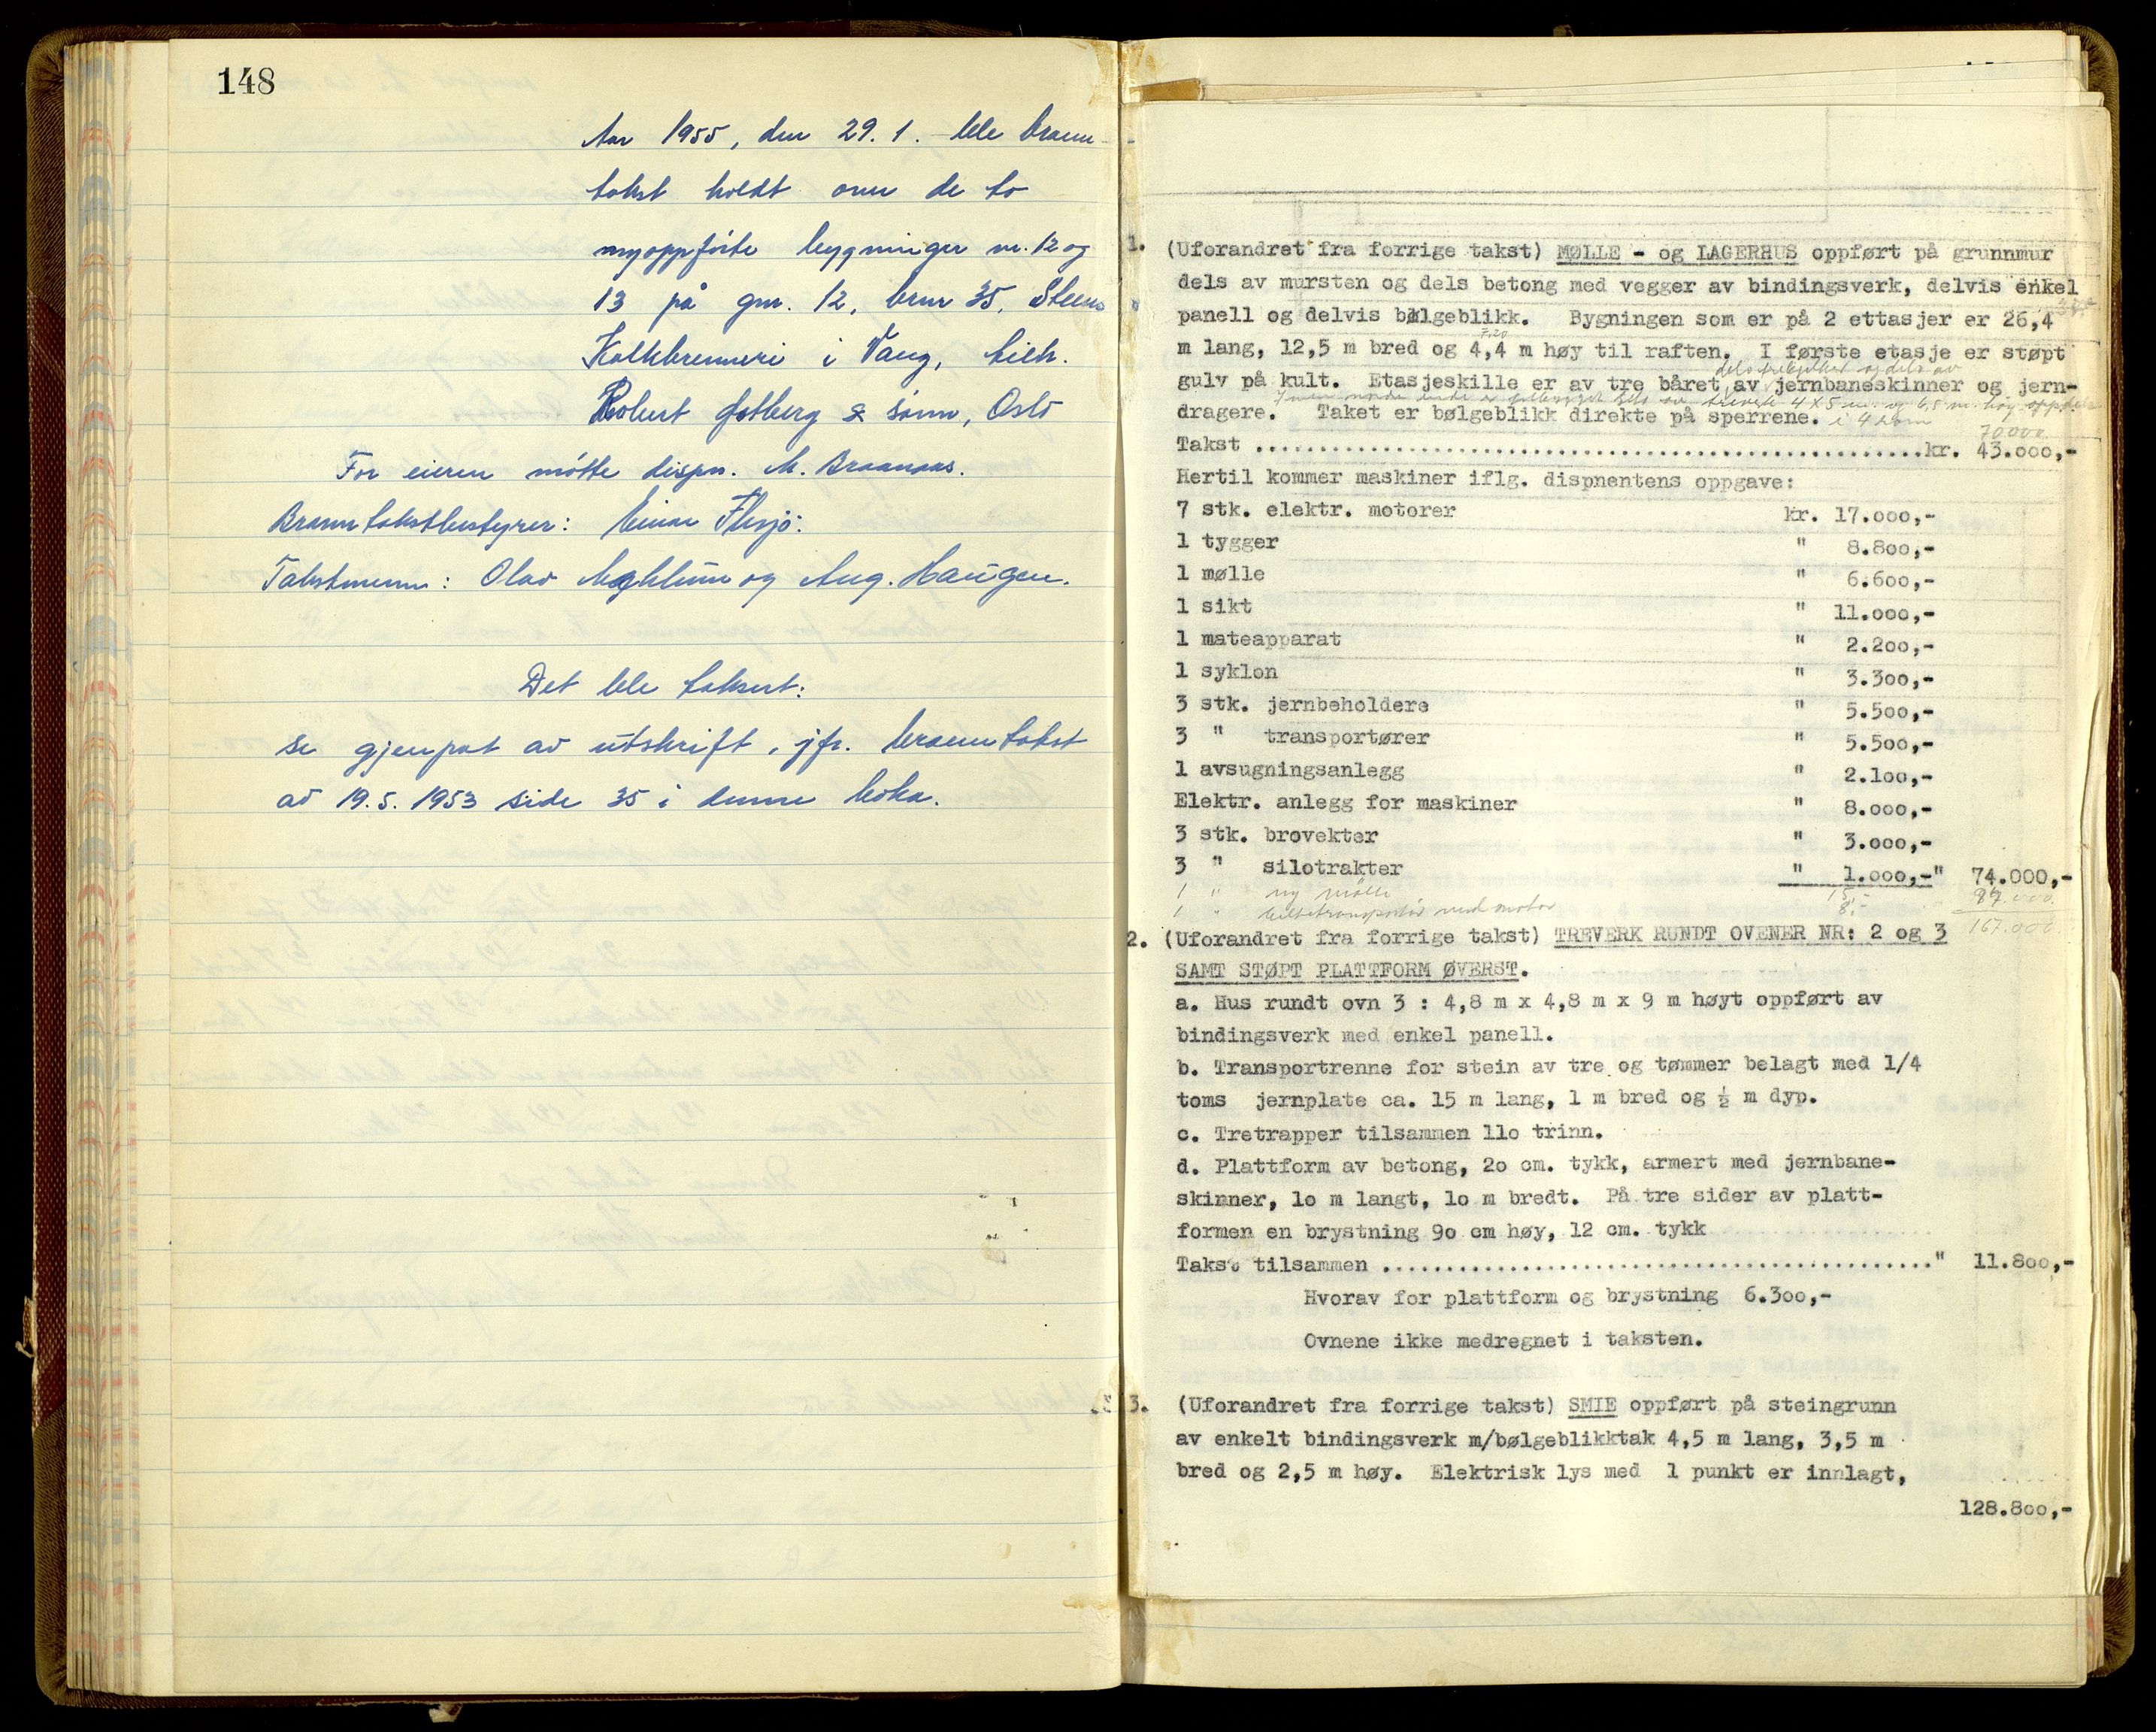 148
Aar 1955, den 29. 1. ble brann-
takst holdt over de to
nyoppförte bygninger nr. 12 og
13 på gnr. 12, bnr 35, Steens
Kalkbrenneri i Vang, tilh.
Robert Fotberg & sönn, Oslo
For eieren mötte dispn. M. Braanaas.
Branntakstbestyrer: Einar Flesjö:
Takstmenn: Olav Mæhlum og Aug. Haugen.
Det ble taksert:
se gjenpat av utskrift, jfr. branntakst
av 19.5. 1953 side 35 i denne boka.
1. (Uforandret fra forrige takst) MØLLE - og LAGERHUS oppført på grunnmur
dels av mursten og dels betong med vegger av bindingsverk, delvis enkel
panell og delvis bølgeblikk. Bygningen som er på 2 ettasjer er 26,4
7,20
m lang, 12,5 m bred og 4,4 m høy til raften. I første etasje er støpt
gulv på kult. Etasjeskille er av tre båret av jernbaneskinner og jern-
dragere. Taket er bølgeblikk direkte på sperrene. i 4 rom
70000
Takst ....................................................kr. 43.000,-
Hertil kommer maskiner iflg. dispnentens oppgave:
7 stk. elektr. motorer kr. 17.000,-
1 tygger " 8.800,-
1 mølle " 6.600,-
1 sikt " 11.000,-
1 mateapparat " 2.200,-
1 syklon " 3.300,-
3 stk. jernbeholdere " 5.500,-
3 " transportører " 5.500,-
1 avsugningsanlegg " 2.100,-
Elektr. anlegg for maskiner " 8.000,-
3 stk. brovekter " 3.000,-
3 " silotrakter " 1.000,-" 74.000,-
1 " ny mölle 15,-
1 " beltetransportör med motor 8,- 97.000
167.000
2. (Uforandret fra forrige takst) TREVERK RUNDT OVENER NR: 2 og 3
SAMT STØPT PLATTFORM ØVERST.
a. Hus rundt ovn 3 : 4,8 m x 4,8 m x 9 m høyt oppført av
bindingsverk med enkel panell.
b. Transportrenne for stein av tre og tømmer belagt med 1/4
toms jernplate ca. 15 m lang, 1 m bred og ½ m dyp.
c. Tretrapper tilsammen 11o trinn.
d. Plattform av betong, 2o cm. tykk, armert med jernbane-
skinner, 1o m langt, 1o m bredt. På tre sider av platt-
formen en brystning 9o cm høy, 12 cm. tykk
Takst tilsammen ..........................................." 11.8oo,-
Hvorav for plattform og brystning 6.3oo,-
Ovnene ikke medregnet i taksten.
3. (Uforandret fra forrige takst) SMIE oppført på steingrunn
av enkelt bindingsverk m/bølgeblikktak 4,5 m lang, 3,5 m
bred og 2,5 m høy. Elektrisk lys med 1 punkt er innlagt,
128.8oo,-